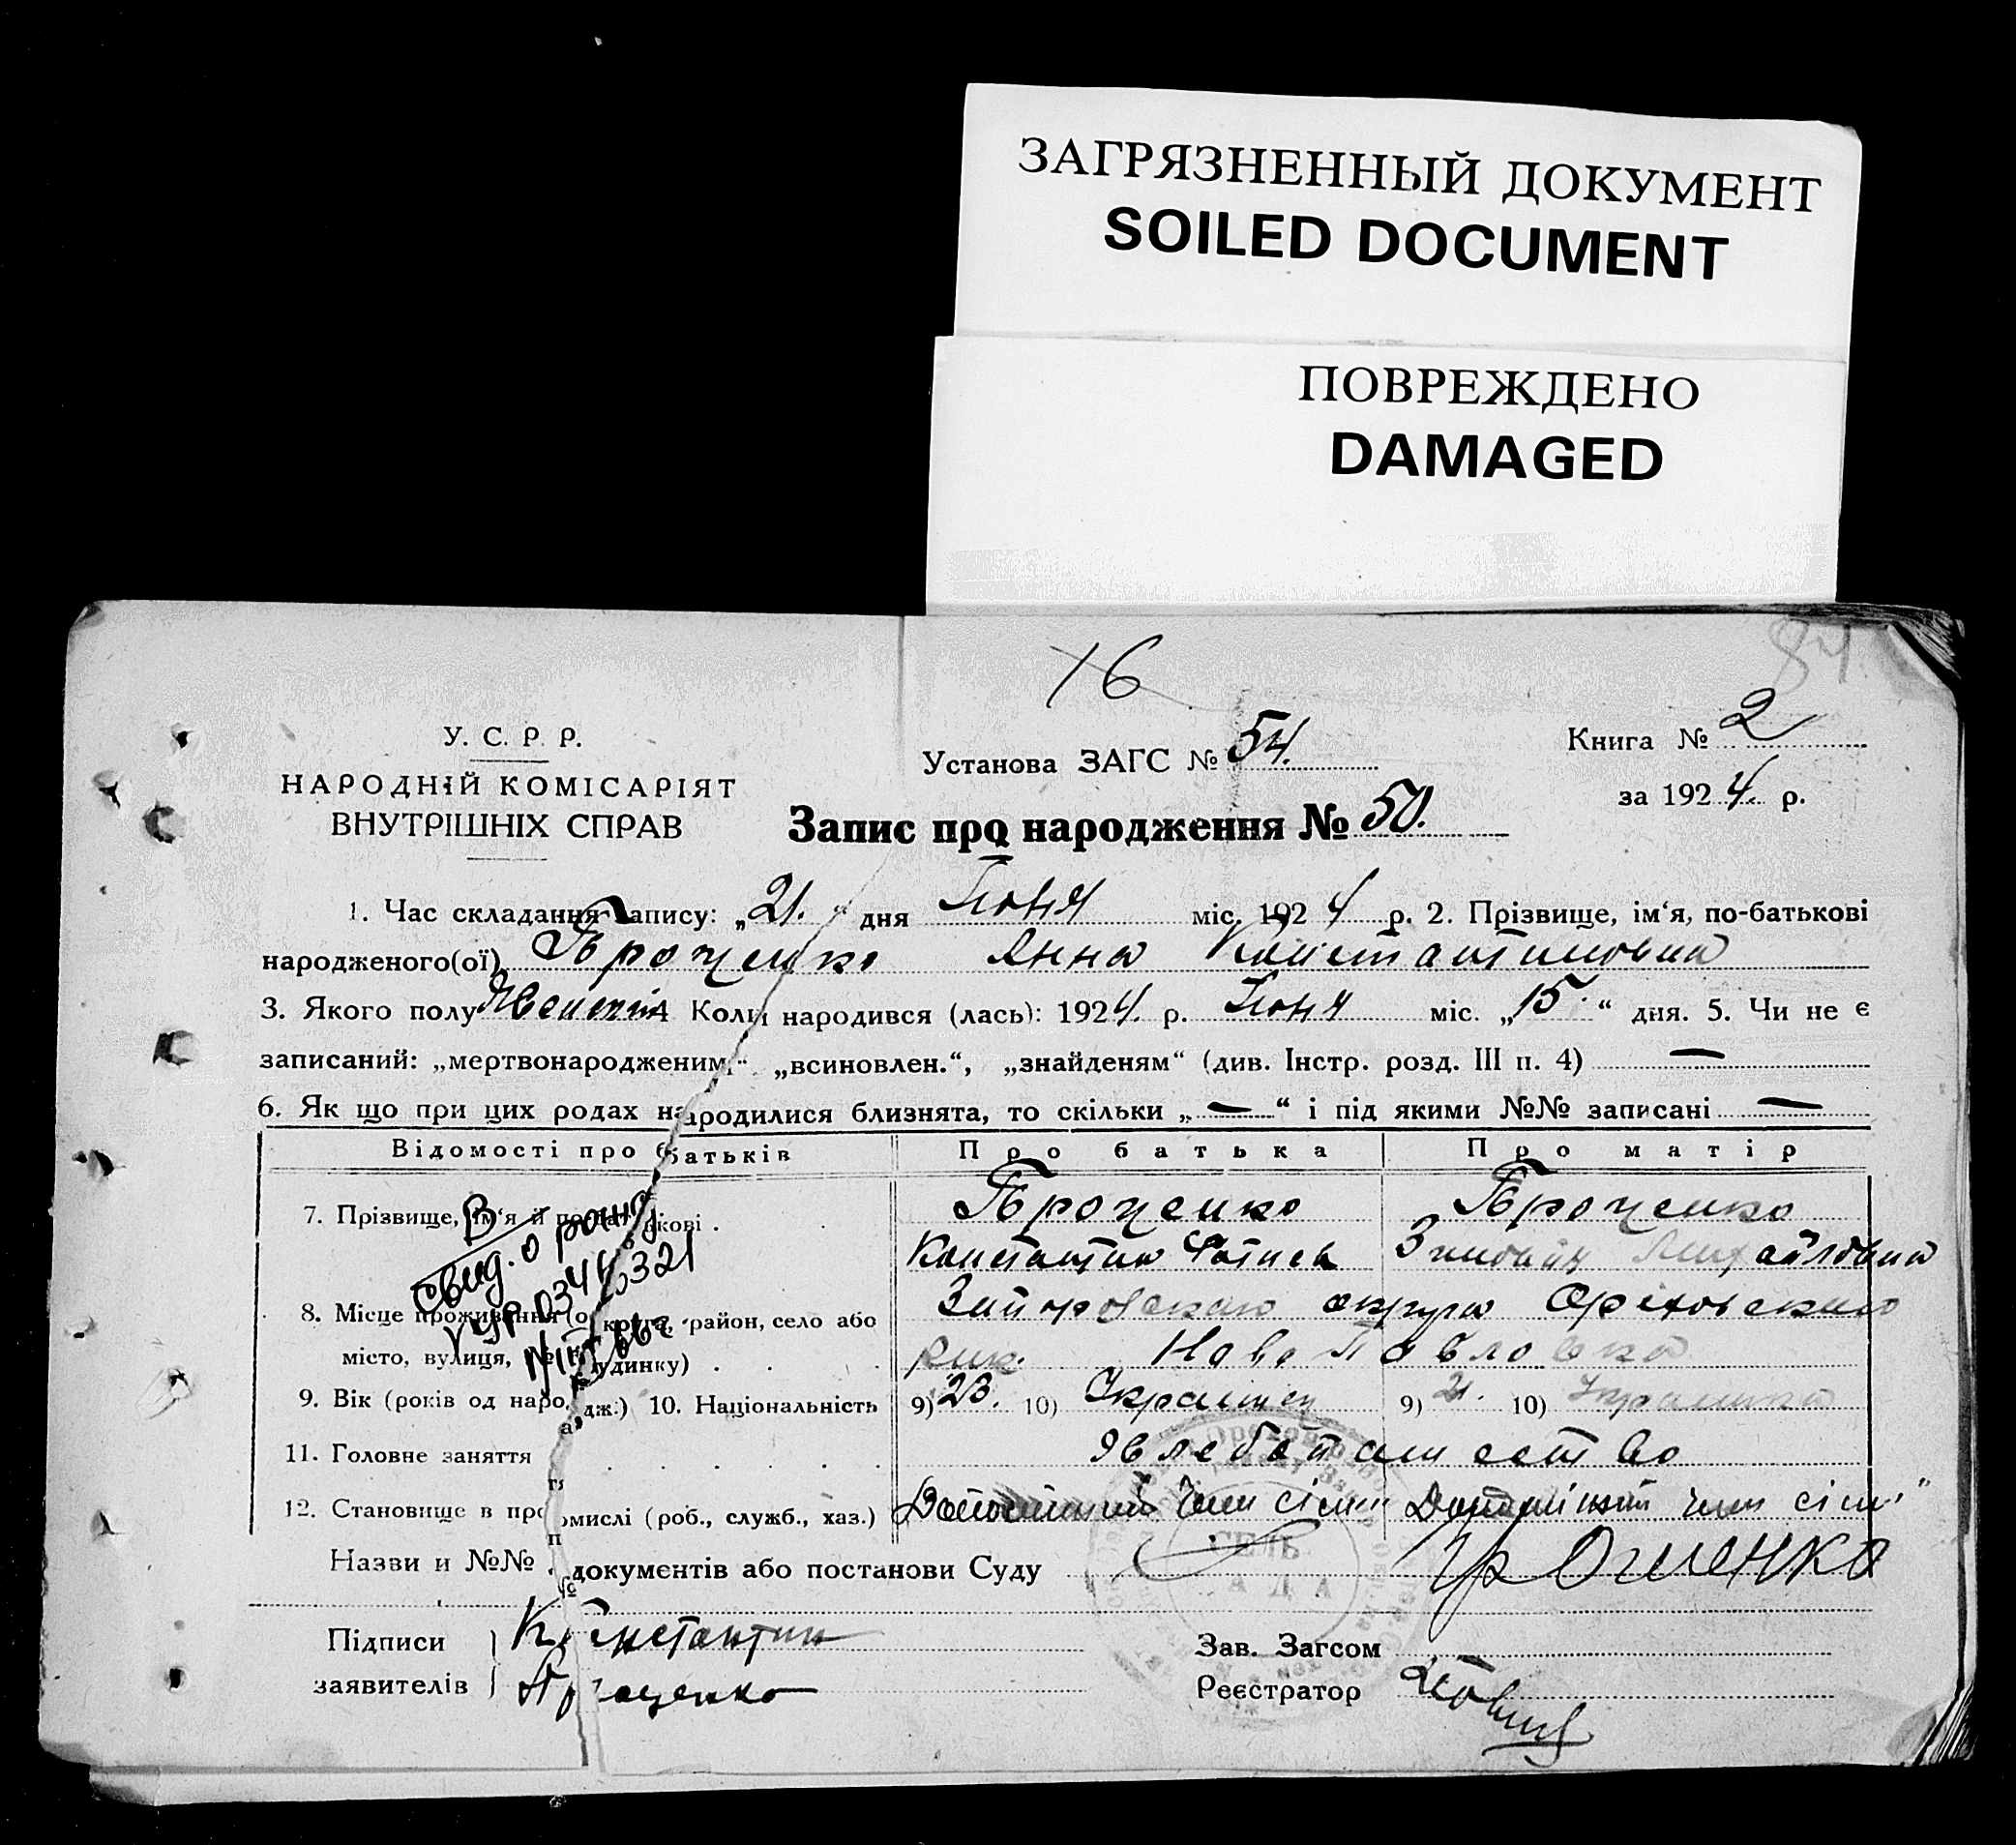 ЗАГРЯЗНЕННЫЙ ДОКУМЕНТ
SOILED DOCUMENT
ПОВРЕЖДЕНО
DAMAGED
16
84.
У. С. Р. Р.
НАРОДНІЙ КОМІСАРІЯТ
ВНУТРІШНІХ СПРАВ
Установа ЗАГС № 54.
Книга № 2
за 1924. р.
Запис про народження № 50.
1. Час складання запису: „21.“ дня Июня міс. 1924 р. 2. Прізвище, ім‘я, по-батькові
народженого(ої) Проценко Анна Константиновна
3. Якого полу 4 Коли народився (лась): 1924. р. Июня міс. „15.“ дня. 5. Чи не є
записаний: „мертвонародженим“ „всиновлен.“, „знайденям“ (див. Інстр. розд. III п. 4) —
6. Як що при цих родах народилися близнята, то скільки „—“ і під якими №№ записані —
Відомості про батьків Про батька Про матір
7. Прізвище, ім‘я й по-батькові . Проценко Проценко
Константин Фотиев
8. Місце проживання (округа, район, село або
місто, вулиця, № будинку) . . . Ново Павловка
9. Вік (років од народж.) 10. Національність 9) 23. 10) Украинец 9) 21. 10) Украинка
11. Головне заняття . . . . .
12. Становище в промислі (роб., служб., хаз.)
Назви и №№ документів або постанови Суду
Підписи заявителів Константин
Проценко
Зав. Загсом
Реєстратор